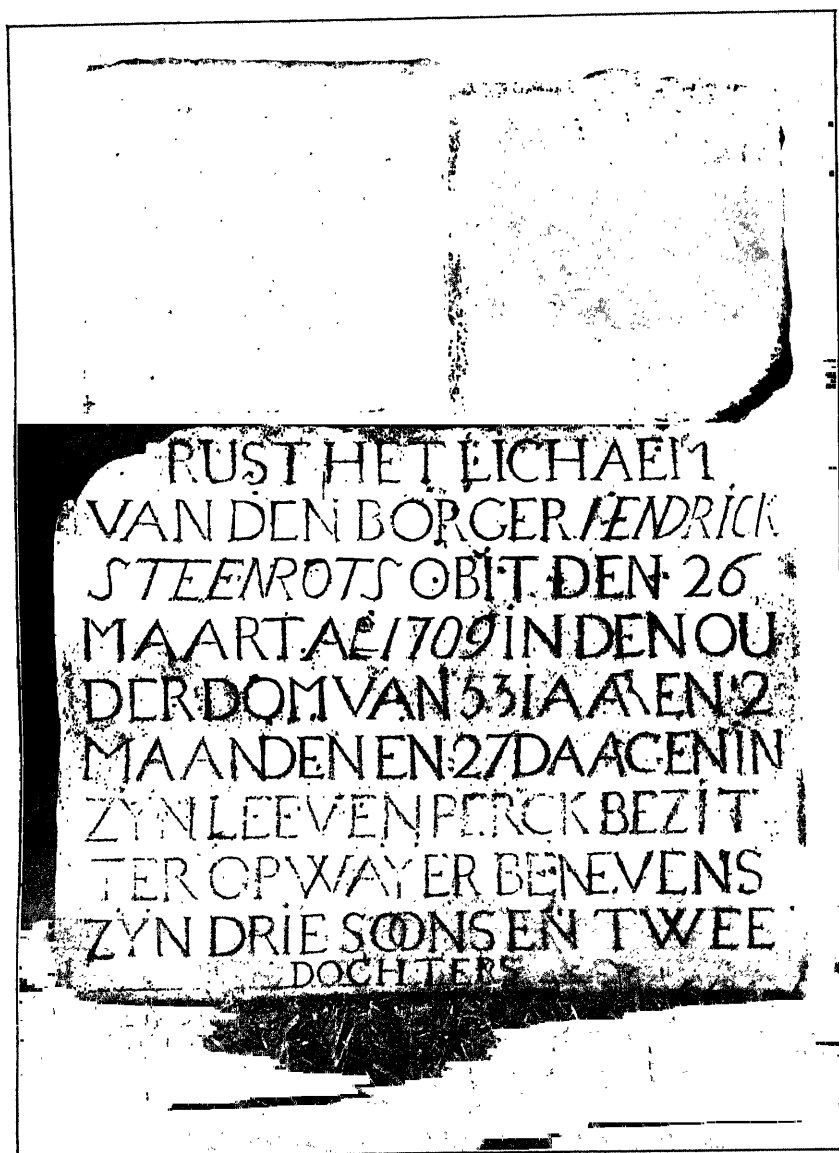 RUST HET LICHAEM
VAN DEN BORGER HENDRICK
STEENROTS OBIT DEN 26
MAART. Aº 1709 IN DEN OU
DERDOM VAN 53 IAAREN 2
MAANDEN EN 27 DAAGEN IN
ZYN LEEVEN PERCK BEZIT
TER OP WAYER BENEVENS
ZYN DRIE SOONS EN TWEE
DOCHTERS